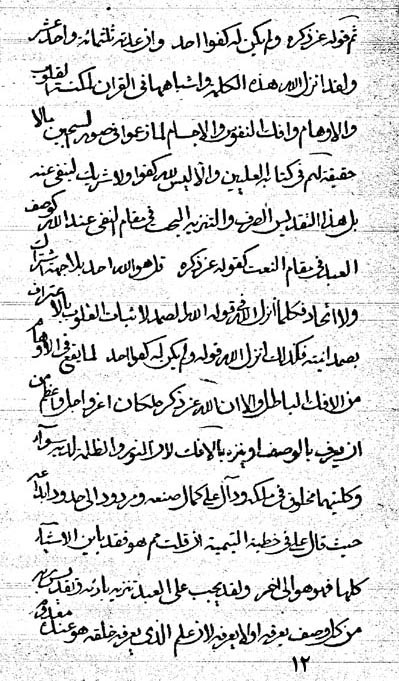 ثم قوله عز ذكره ولم يكن له كفوا احد وان عدته ثلثمائة واحد عشر
ولقد انزل الله هذه الكلمة واشباهها فى القران لمكنسة القلوب
والاوهام وافك النفوس والاجسام لما زعموا فى صور السجين مالا
حقيقة لهم فى كتاب العليين والا ليس لله كفوا ولا شريك لينفى عنه
بل هذا التقديس الصرف والتنزيه البحت فى مقام النفى عند الله كوصف
العبد فى مقام النعت كقوله عز ذكره قل هو الله احد بلا جهة اشتراك
ولا اتحاد فكلما انزل الله فى قوله الله الصمد لاثبات القلوب بالاعتراف
بصمدانيته فكذلك انزل الله قوله ولم يكن له كفوا احد لما يقع فى الاوهام
من الافك الباطل والا ان الله عز ذكره كان اعز واجل واعظم من
ان يعرف بالوصف او ينزه بالافك لان النور والظلمة لديه سواء
وكليهما مخلوق فى ملكه ودال على كمال صنعه ومردود الى حدود ابداعه
حيث قال على فى خطبة اليتيمية ان قلت مم هو فقد باين الاشياء
كلها فهو هو الى اخر ولقد يجب على العبد تنزيه بارئه وتقديس ربه
من كل وصف يعرفه او لا يعرفه لان علم الذى يعرفه خلقه هو عنده مفقود
١٢